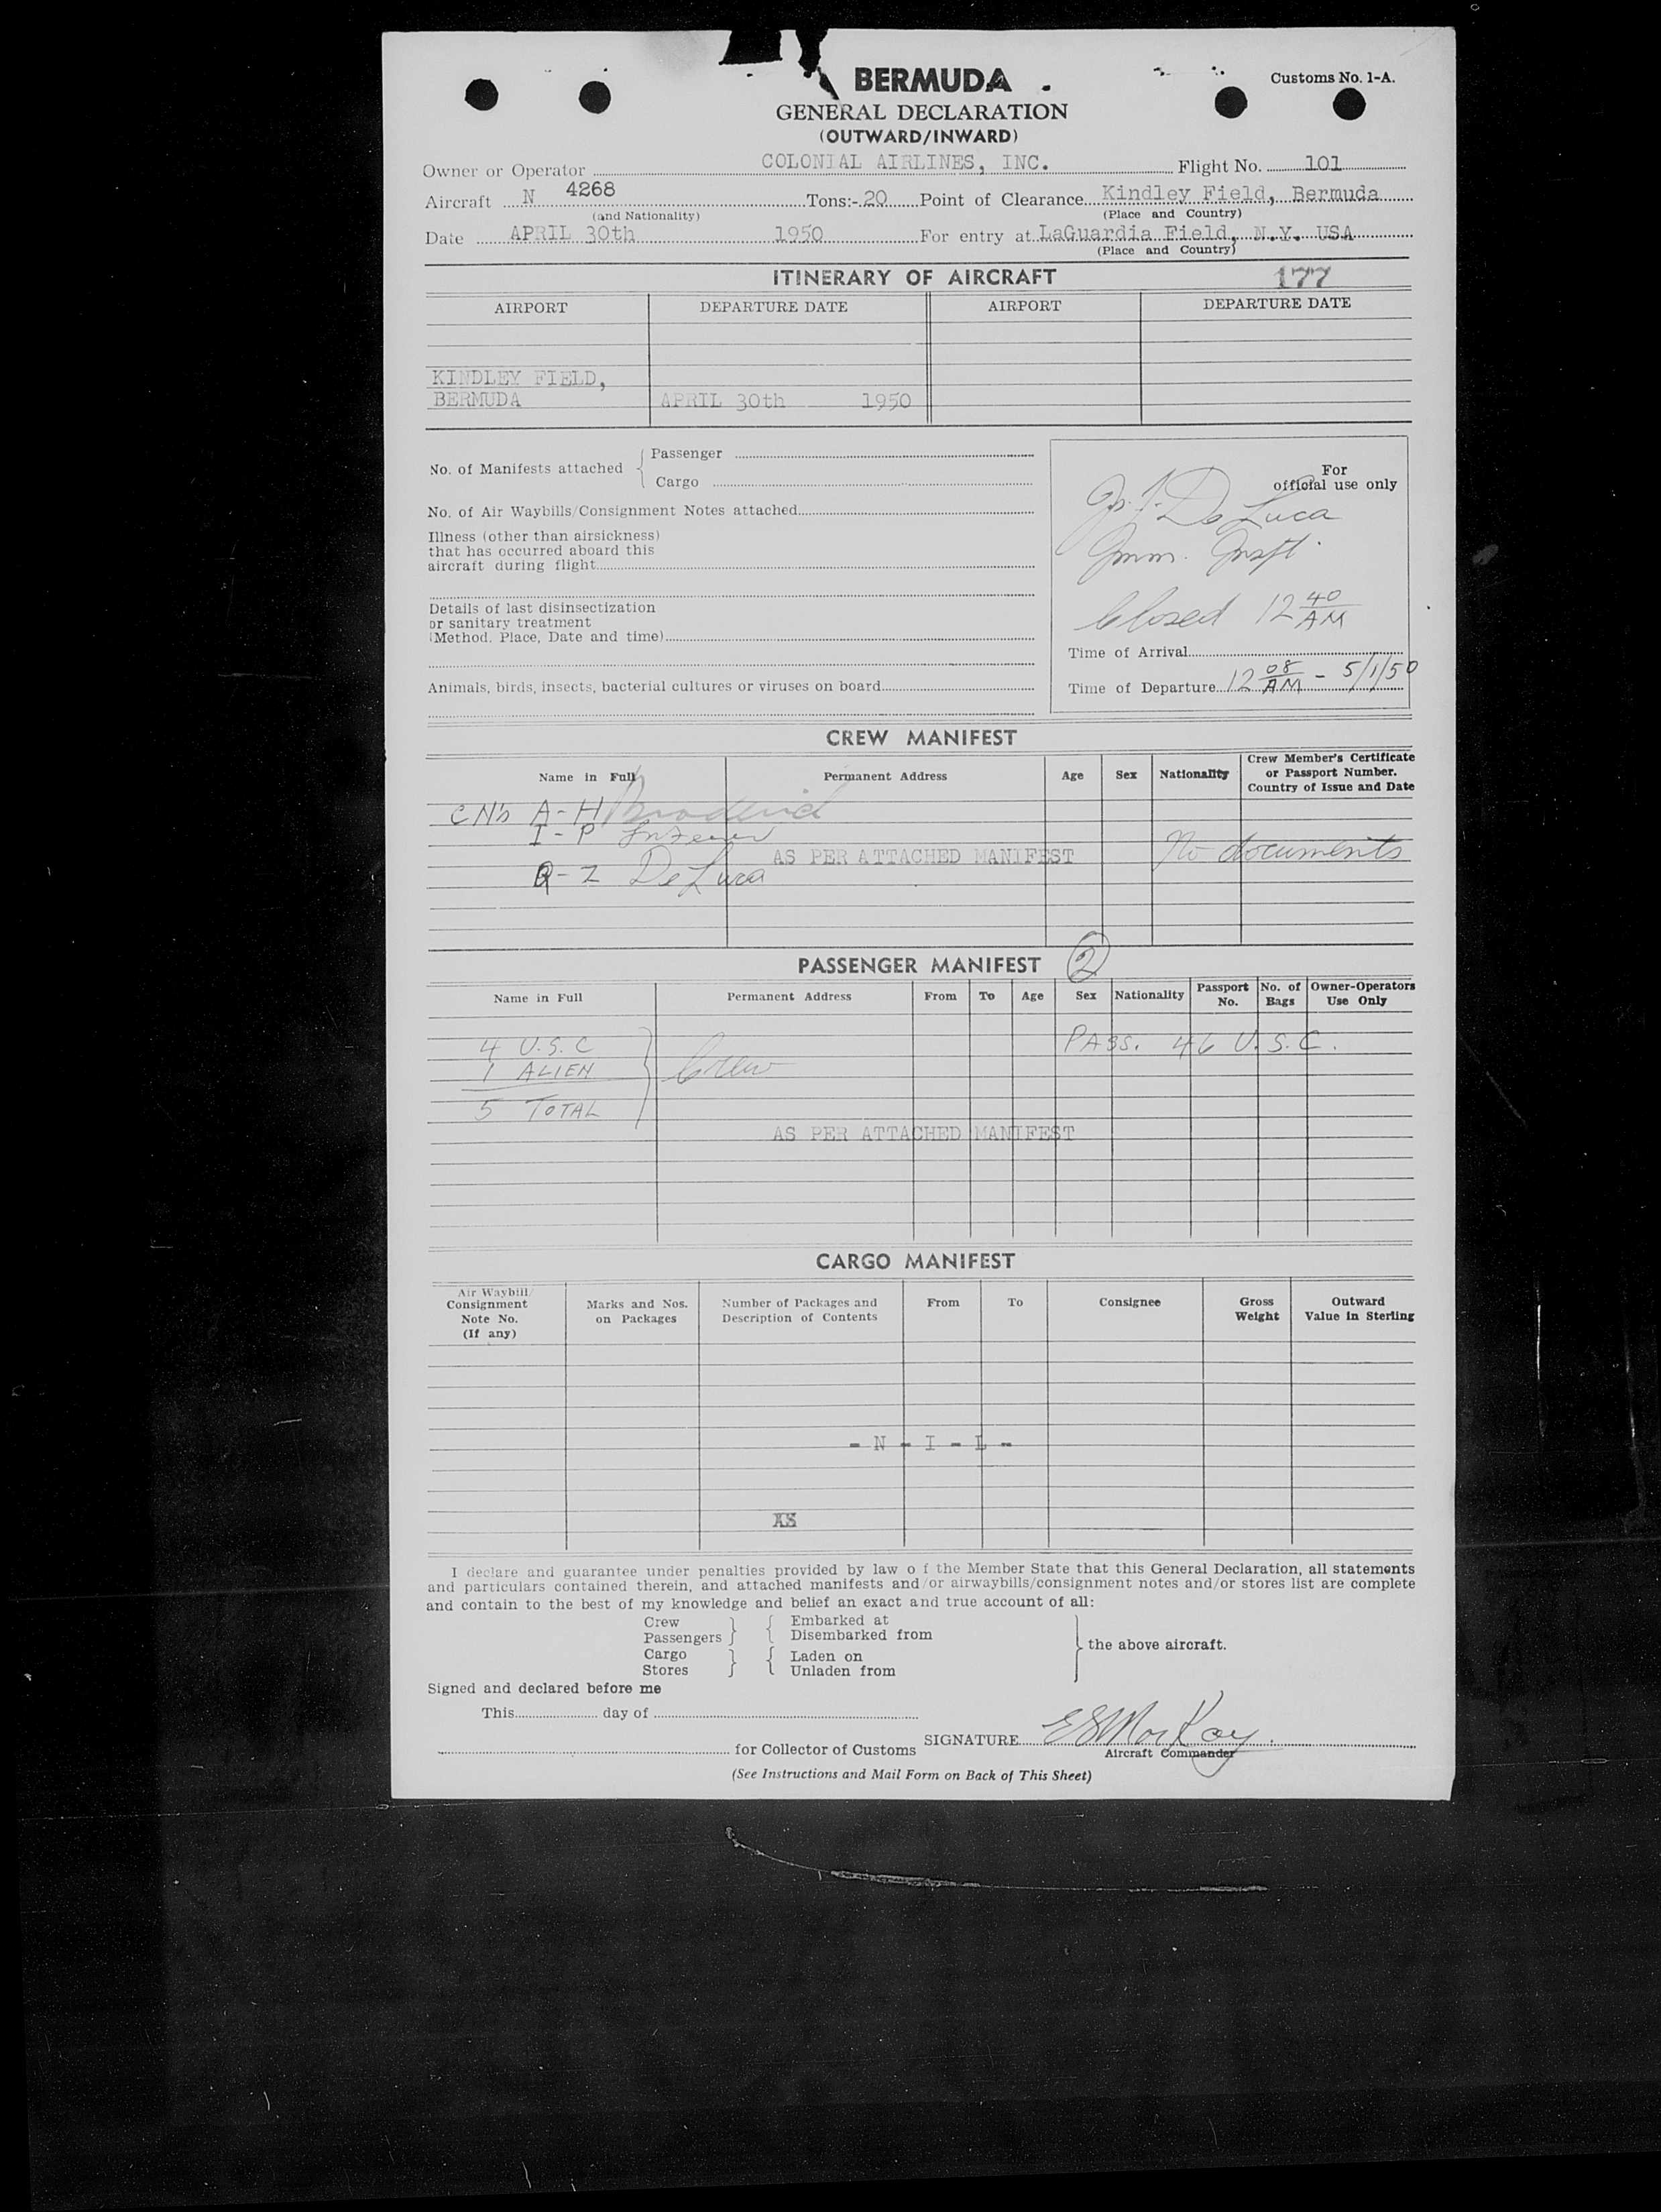 BERMUDA
Customs No. 1-A.
GENERAL DECLARATION
(OUTWARD/INWARD)
Owner or Operator COLONIAL AIRLINES, INC. Flight No. 101
Aircraft N 4268 Tons:- 20 Point of Clearance Kindley Field, Bermuda
(and Nationality) (Place and Country)
Date APRIL 30th 1950 For entry at LaGuardia Field, N.Y. USA
(Place and Country)
ITINERARY OF AIRCRAFT 177
AIRPORT DEPARTURE DATE AIRPORT DEPARTURE DATE
KINDLEY FIELD,
BERMUDA APRIL 30th 1950
No. of Manifests attached
Passenger
Cargo
No. of Air Waybills/Consignment Notes attached
Illness (other than airsickness)
that has occurred aboard this
aircraft during flight
Details of last disinsectization
or sanitary treatment
(Method, Place, Date and time)
Animals, birds, insects, bacterial cultures or viruses on board
For
official use only
De Luca
Imm. Inspt.
Closed 12 40 AM
Time of Arrival
Time of Departure 12 08 AM - 5/1/50
CREW MANIFEST
Name in Full Permanent Address Age Sex Nationality Crew Member's Certificate
or Passport Number.
Country of Issue and Date
A-H Broderick
I-P
AS PER ATTACHED MANIFEST No documents
Q-Z De Luca
PASSENGER MANIFEST 2
Name in Full Permanent Address From To Age Sex Nationality Passport No. No. of Bags Owner-Operators Use Only
4 U.S.C PASS. 46 U.S.C.
1 ALIEN Crew
5 TOTAL
AS PER ATTACHED MANIFEST
CARGO MANIFEST
Air Waybill/
Consignment
Note No.
(If any)
Marks and Nos.
on Packages
Number of Packages and
Description of Contents
From To Consignee
Gross
Weight
Outward
Value in Sterling
- N - I - L -
I declare and guarantee under penalties provided by law o f the Member State that this General Declaration, all statements
and particulars contained therein, and attached manifests and/or airwaybills/consignment notes and/or stores list are complete
and contain to the best of my knowledge and belief an exact and true account of all:
Crew Embarked at
Passengers Disembarked from
the above aircraft.
Cargo Laden on
Stores Unladen from
Signed and declared before me
This day of
SIGNATURE E S MacKay
for Collector of Customs Aircraft Commander
(See Instructions and Mail Form on Back of This Sheet)